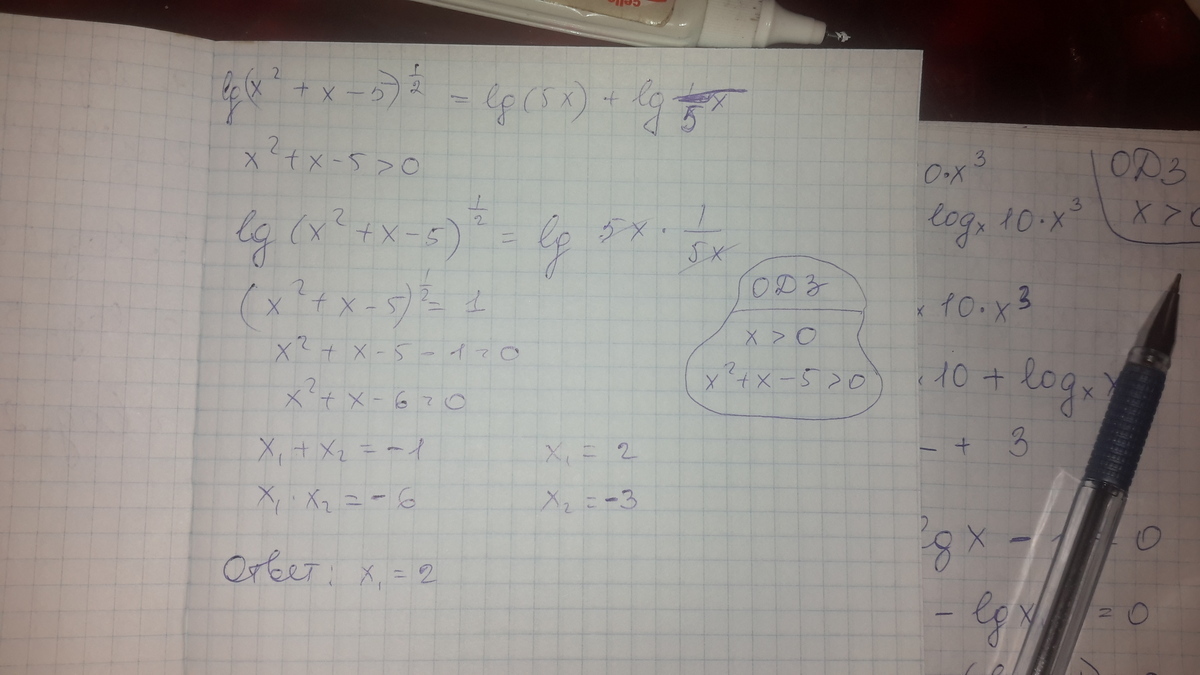 lg(x² + x − 5)^(1/2) = lg(5x) + lg 1/5x
x² + x − 5 > 0
lg (x² + x − 5)^(1/2) = lg 5x · 1/5x
(x² + x − 5)^(1/2) = 1
x² + x − 5 − 1 = 0
x² + x − 6 = 0
x₁ + x₂ = −1 x₁ = 2
x₁ · x₂ = −6 x₂ = −3
Ответ: x₁ = 2
ОДЗ
x > 0
x² + x − 5 > 0
0·x³
logₓ 10·x³
ОДЗ
x > 0
10·x³
10 + logₓ
+ 3
lg x − 1 = 0
− lg x = 0